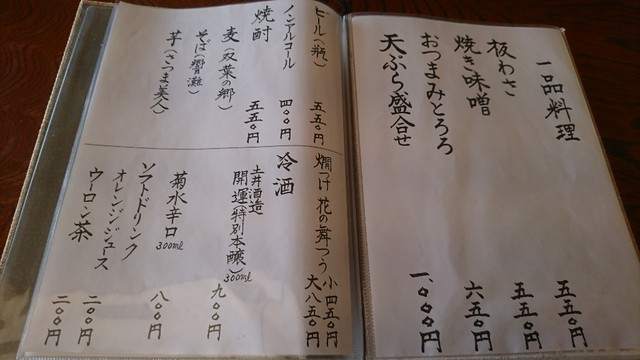 一品料理
板わさ 五五〇円
焼き味噌 五五〇円
おつまみとろろ 六五〇円
天ぷら盛合せ 一、〇〇〇円
ビール(瓶) 五五〇円
ノンアルコール 四〇〇円
焼酎 五五〇円
麦(双葉の郷)
そば(響灘)
芋(さつま美人)
燗つけ 花の舞つう 小四五〇円
大八五〇円
冷酒
土井酒造
開運(特別本醸) 300ml 九〇〇円
菊水辛口 300ml 八〇〇円
ソフトドリンク
オレンジジュース 二〇〇円
ウーロン茶 二〇〇円